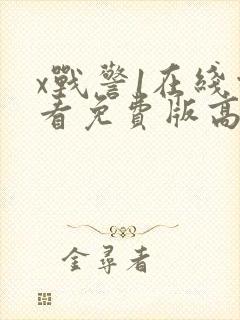 x戰警1在綫
看免費版高
金尋者